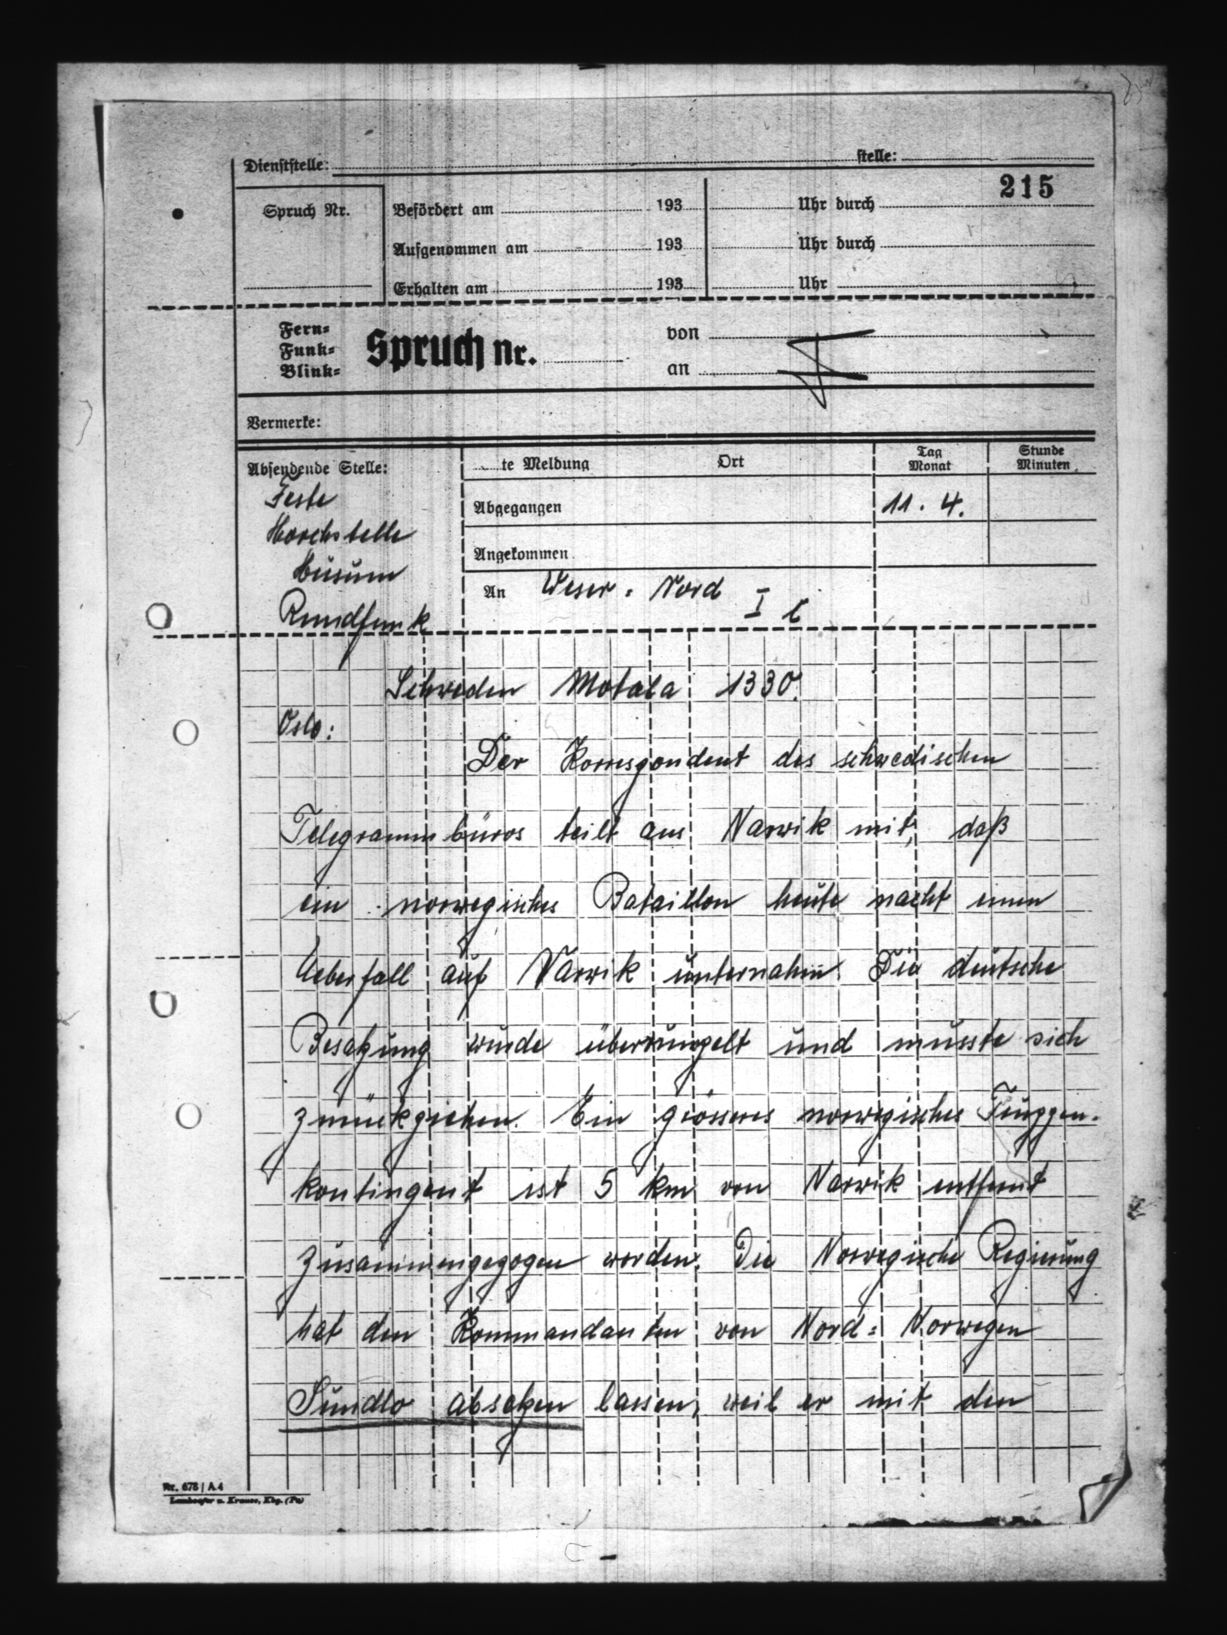 Dienststelle: stelle:
215
Spruch Nr. Befördert am 193 Uhr durch
Aufgenommen am 193 Uhr durch
Erhalten am 193 Uhr
Fern=
Funk=
Blink=
Spruch nr.
von
an
Vermerke:
Absendende Stelle: te Meldung Ort Tag Monat Stunde Minuten
Feste
Horchstelle
Husum
Rundfunk
Abgegangen 11. 4.
Angekommen
An Weser = Nord I c
Schweden Motala 1330.
Oslo:
Der Korrespondent des schwedischen
Telegrammbüros teilt aus Narvik mit, daß
ein norwegisches Bataillon heute nacht einen
Ueberfall auf Narvik unternahm. Die deutsche
Besatzung wurde überrumpelt und musste sich
zurückziehen. Ein grösseres norwegisches Truppen-
kontingent ist 5 km von Narvik entfernt
zusammengezogen worden. Die Norwegische Regierung
hat den Kommandanten von Nord= Norwegen
Sundlo absetzen lassen, weil er mit den
Nr. 678 | A.4